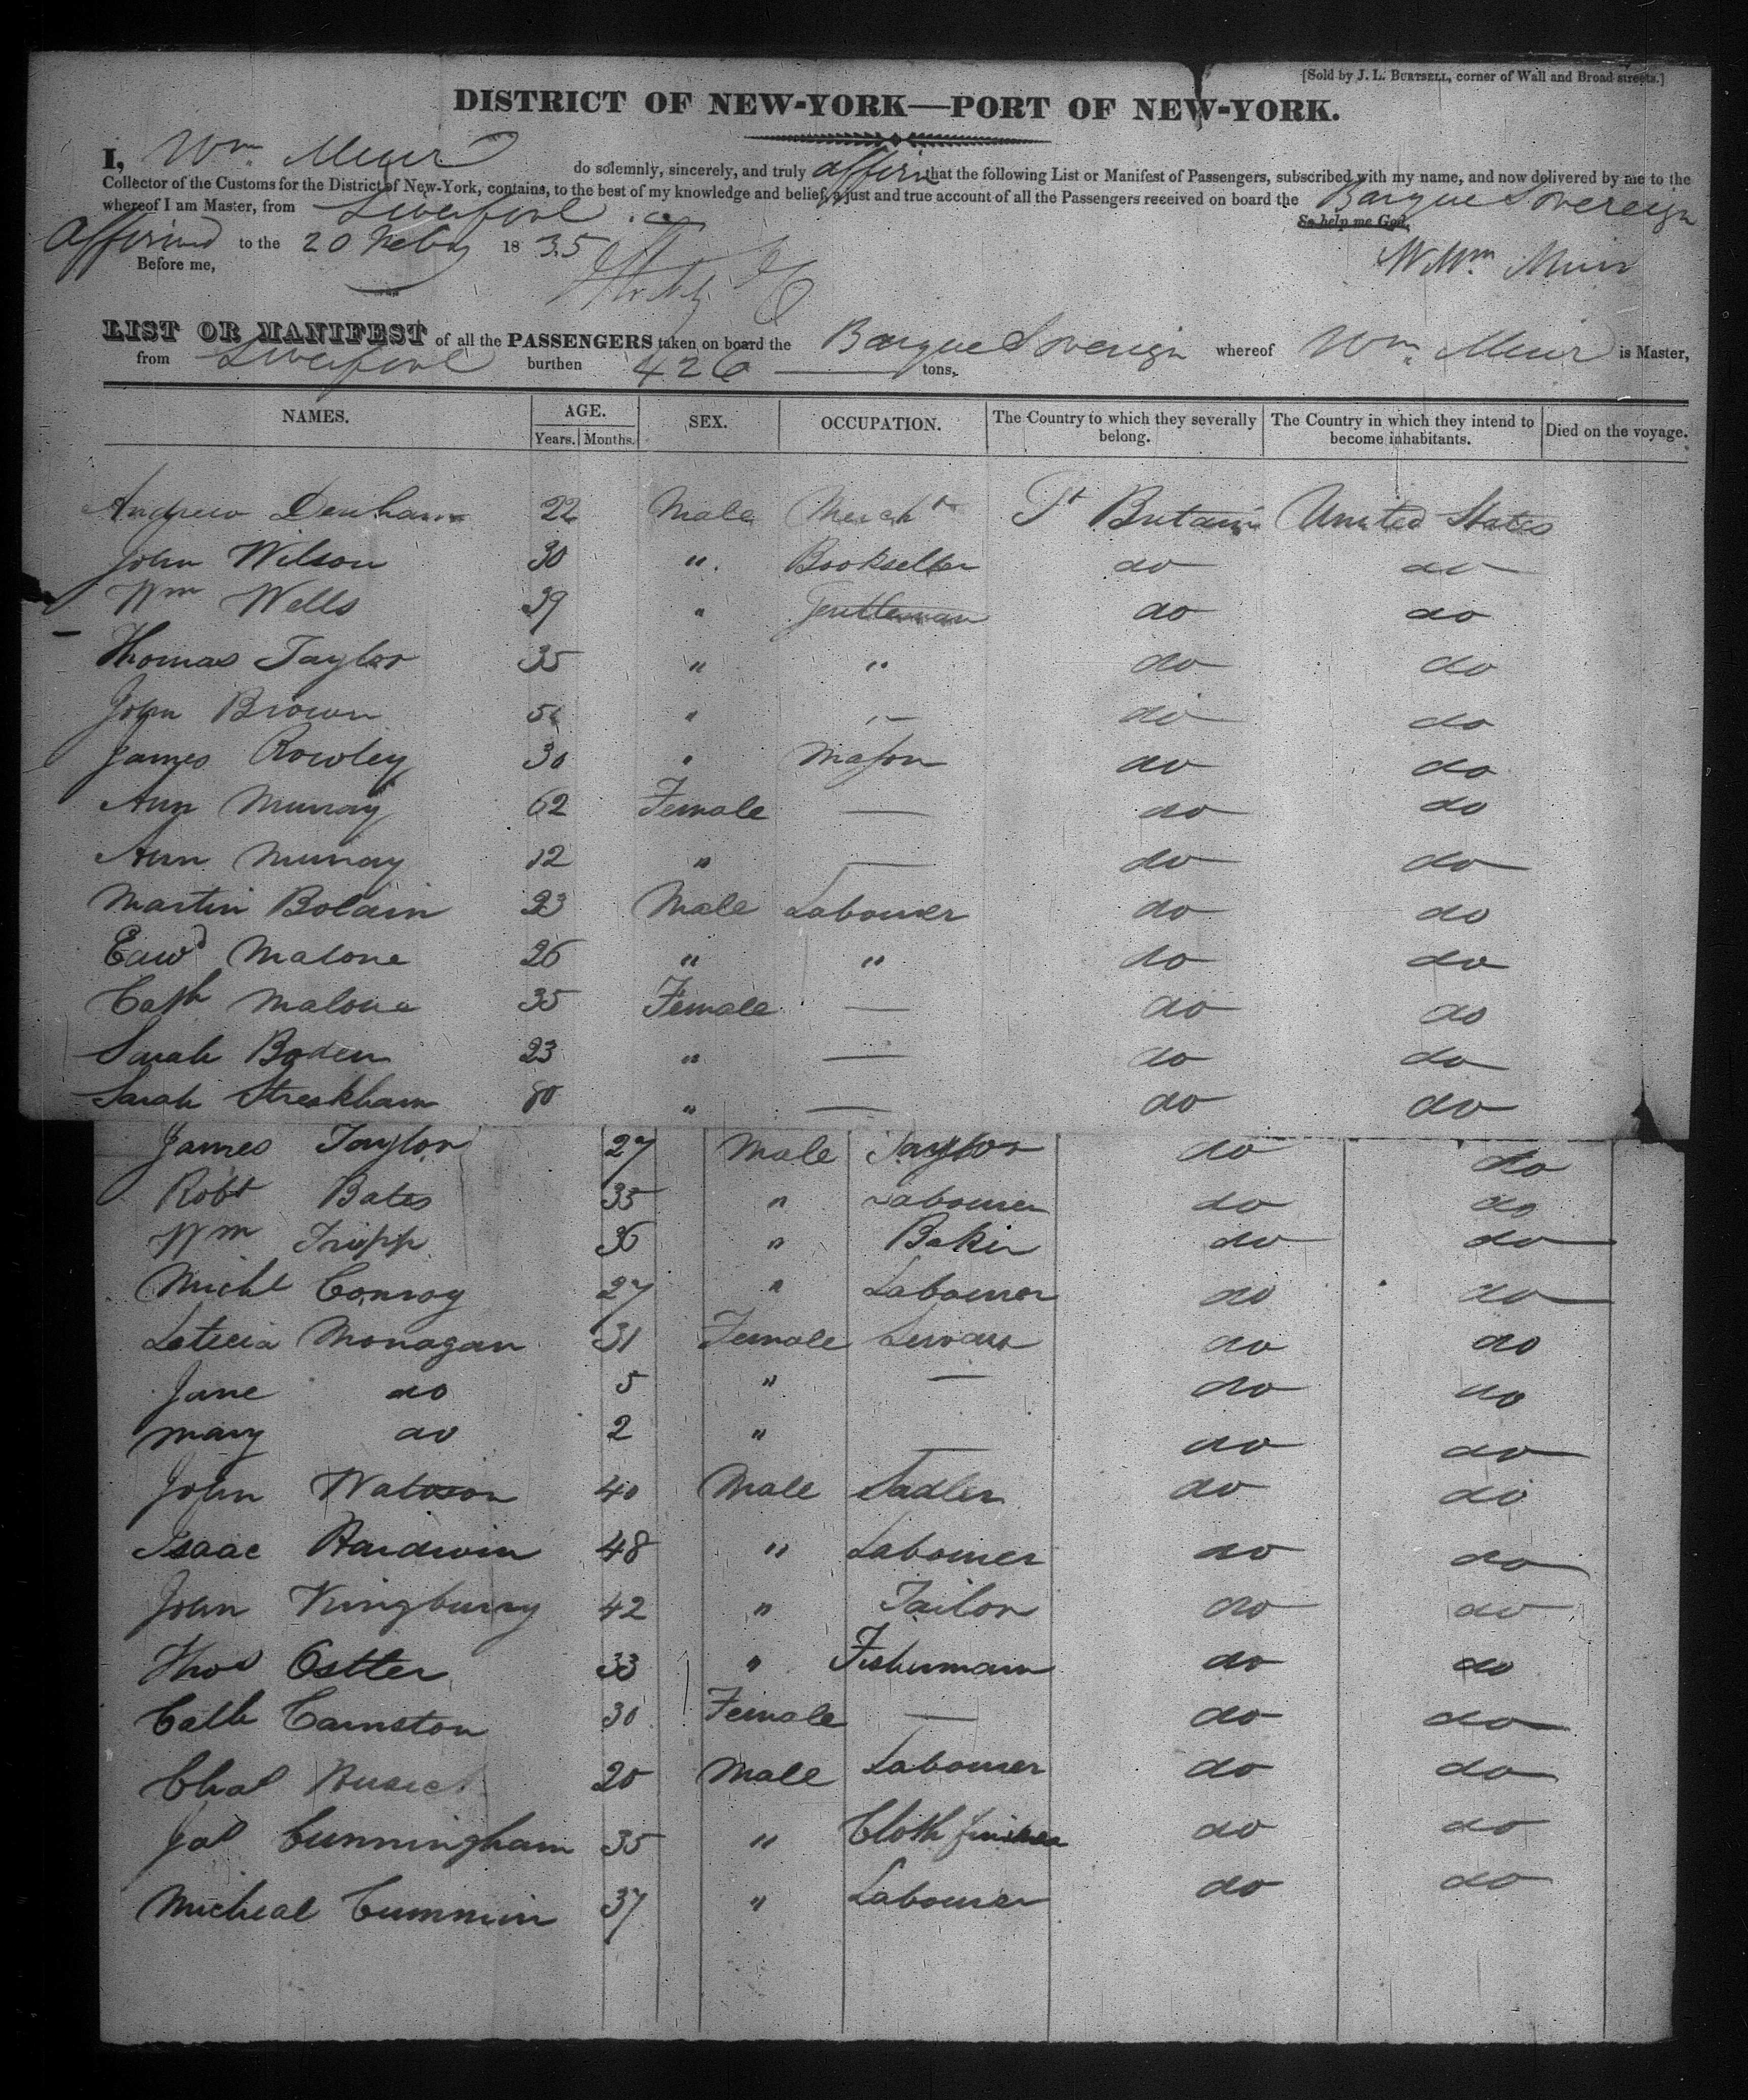 [Sold by J. L. BURTSELL, corner of Wall and Broad streets.]
DISTRICT OF NEW-YORK—PORT OF NEW-YORK.
I, Wm Muir do solemnly, sincerely, and truly affirm that the following List or Manifest of Passengers, subscribed with my name, and now delivered by me to the
Collector of the Customs for the District of New-York, contains, to the best of my knowledge and belief, a just and true account of all the Passengers received on board the Barque Sovereign
whereof I am Master, from Liverpool So help me God.
Affirmed to the 20 Feby 1835 Wm Muir
Before me,
LIST OR MANIFEST of all the PASSENGERS taken on board the Barque Sovereign whereof Wm Muir is Master,
from Liverpool burthen 426 tons.
NAMES. AGE. SEX. OCCUPATION. The Country to which they severally belong. The Country in which they intend to become inhabitants. Died on the voyage.
Years. Months.
Andrew Denham 22 Male Mercht Britain United States
John Wilson 30 " Bookseller do do
Wm Wells 39 " Gentleman do do
Thomas Taylor 35 " " do do
John Brown " do do
James Rowley 30 " Mason do do
Ann Murray 62 Female — do do
Ann Murray 12 " — do do
Martin Boldin 23 Male Labourer do do
Edwd Malone 26 " " do do
Cath Malone 35 Female — do do
Sarah Boden 23 " — do do
Sarah Streakham 80 " — do do
James Taylor 27 Male Taylor do do
Robt Bates 35 " Labourer do do
Wm Tripp 36 " Baker do do
Michl Conroy 27 " Labourer do do
Leticia Monagan 31 Female Servant do do
Jane do 5 " — do do
Mary do 2 " — do do
John Watson 40 Male Sadler do do
Isaac Hardwin 48 " Labourer do do
John Kingbury 42 " Tailor do do
Thos Ostler 33 " Fisherman do do
Cath Carnston 30 Female — do do
Chas 20 Male Labourer do do
Jas Cunningham 35 " Cloth finisher do do
Micheal Cummin 37 " Labourer do do